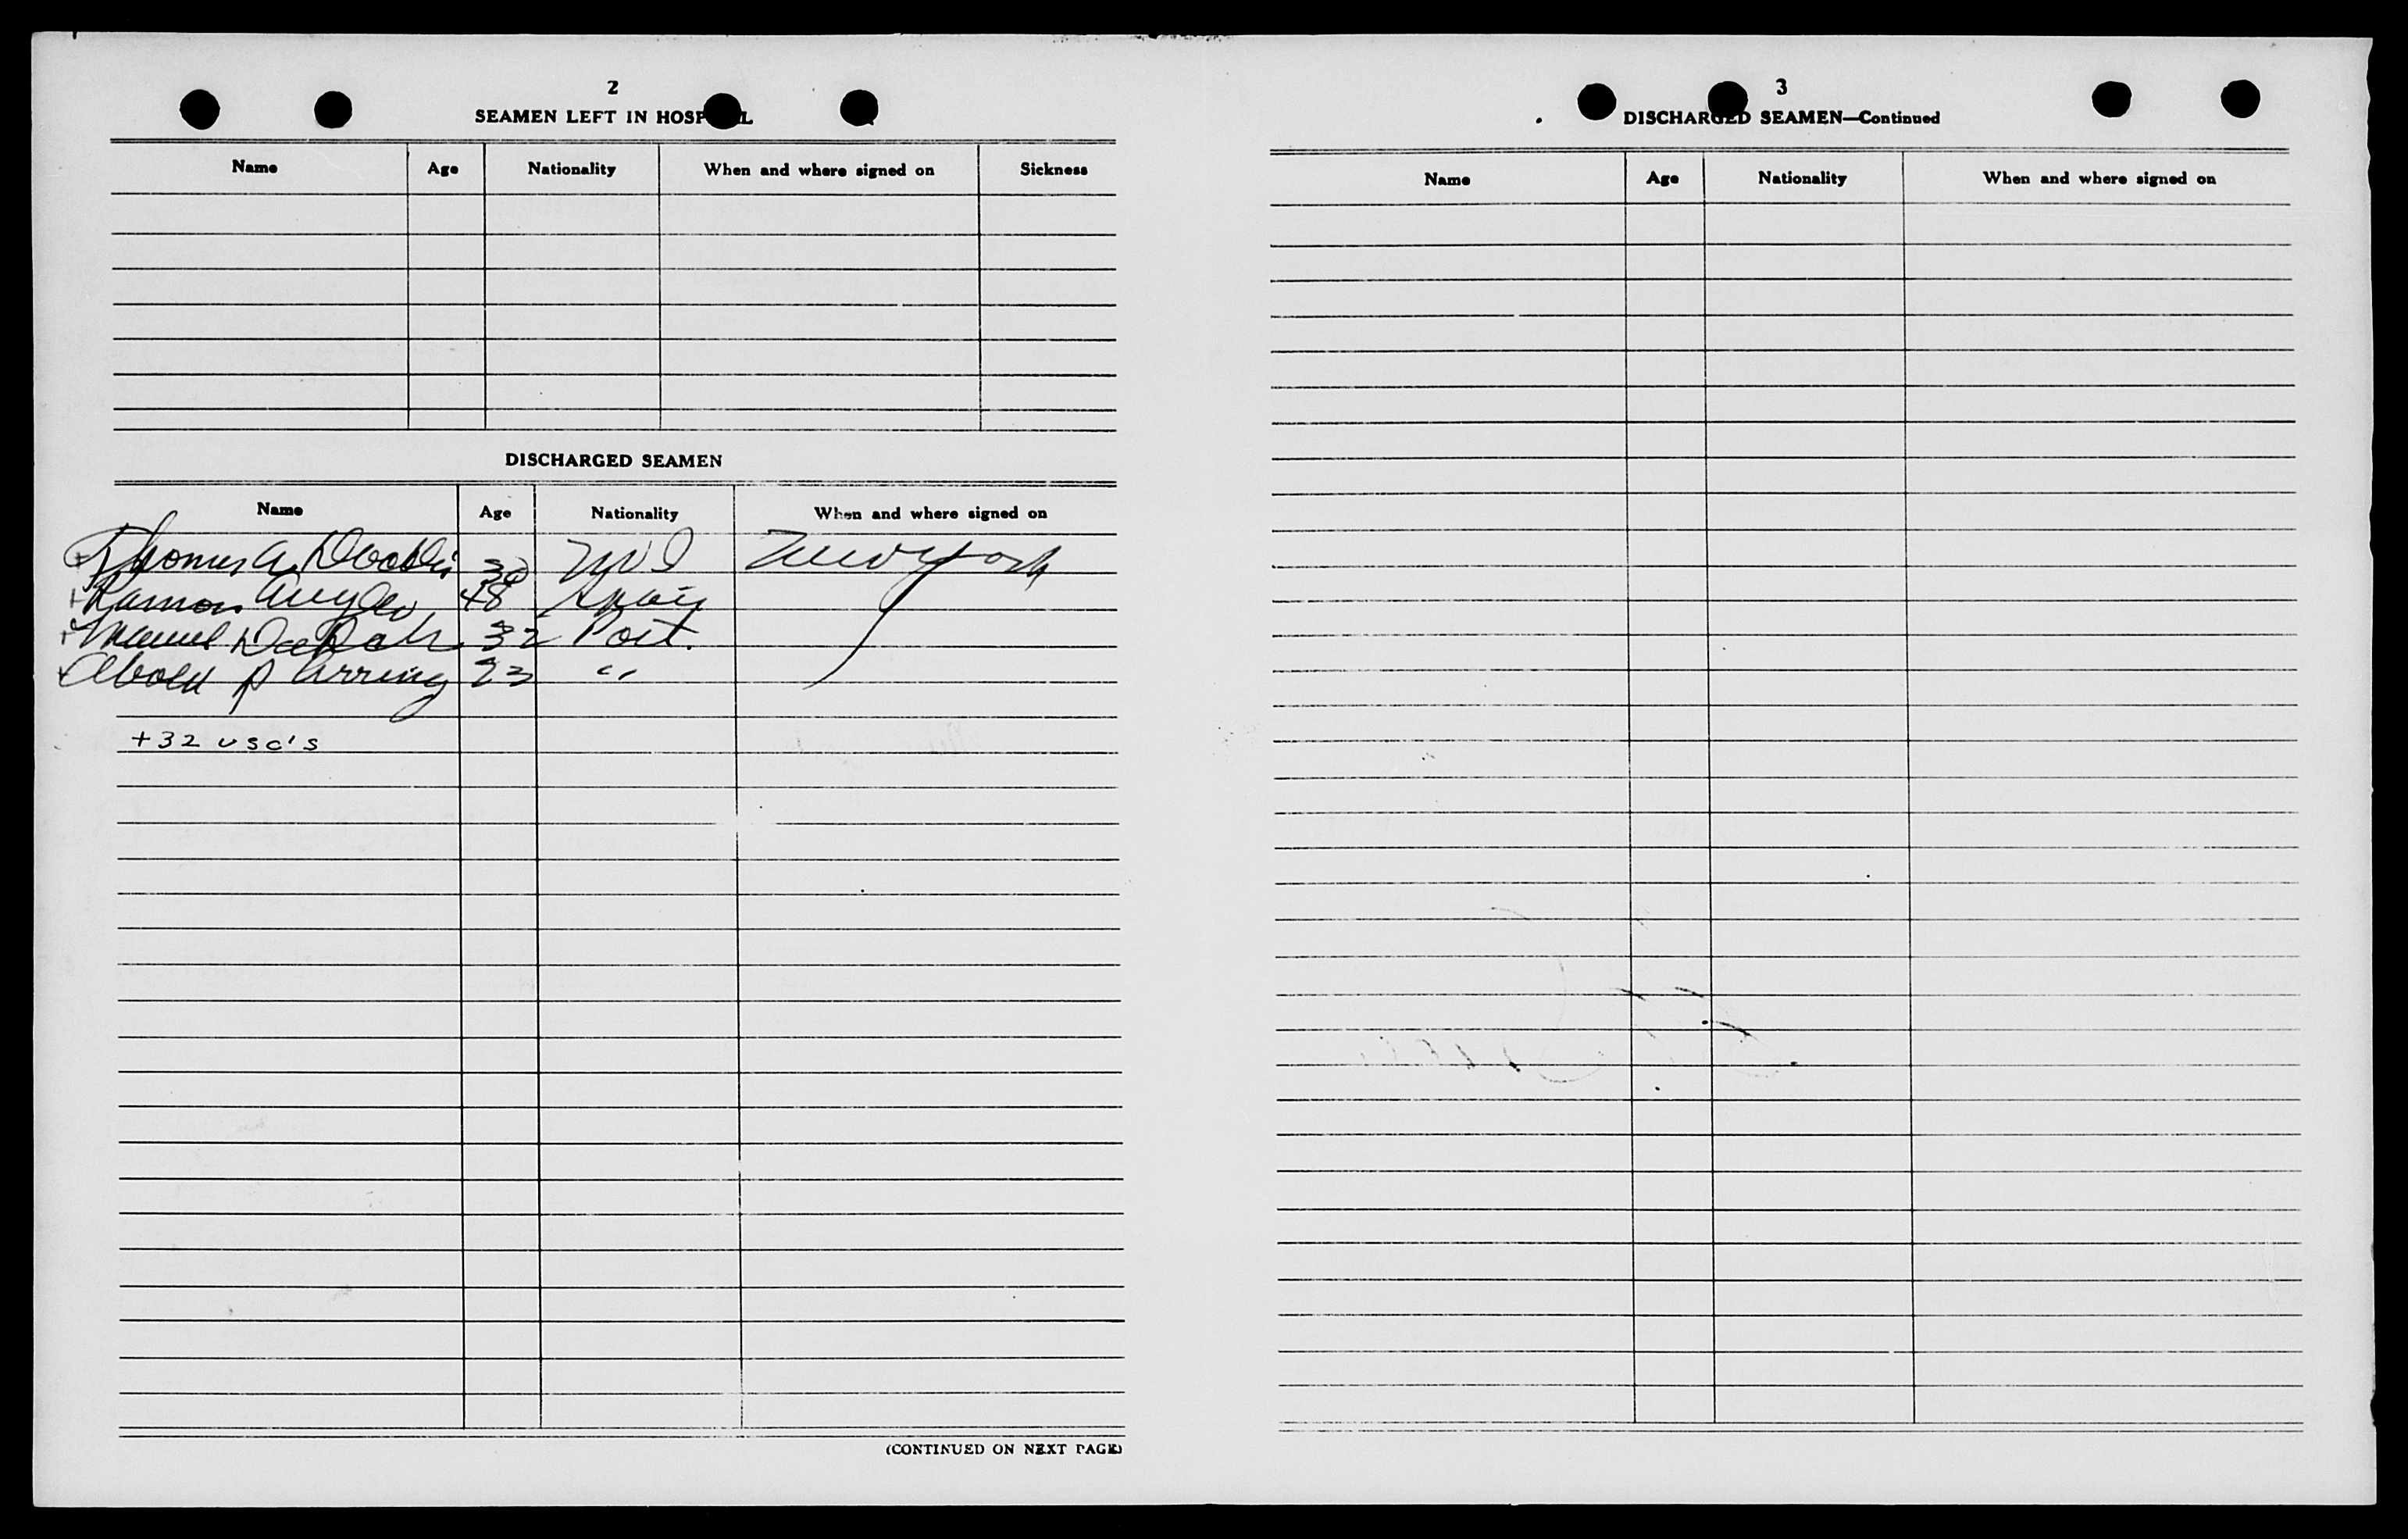 2
SEAMEN LEFT IN HOSP L
Name Age Nationality When and where signed on Sickness
DISCHARGED SEAMEN
Name Age Nationality When and where signed on
+ Thomas A. 38 New York
+ Ramon 48 Spain
+ Manuel 32 Port.
+ 23 "
+32 USC's
(CONTINUED ON NEXT PAGE)
3
DISCHARGED SEAMEN—Continued
Name Age Nationality When and where signed on